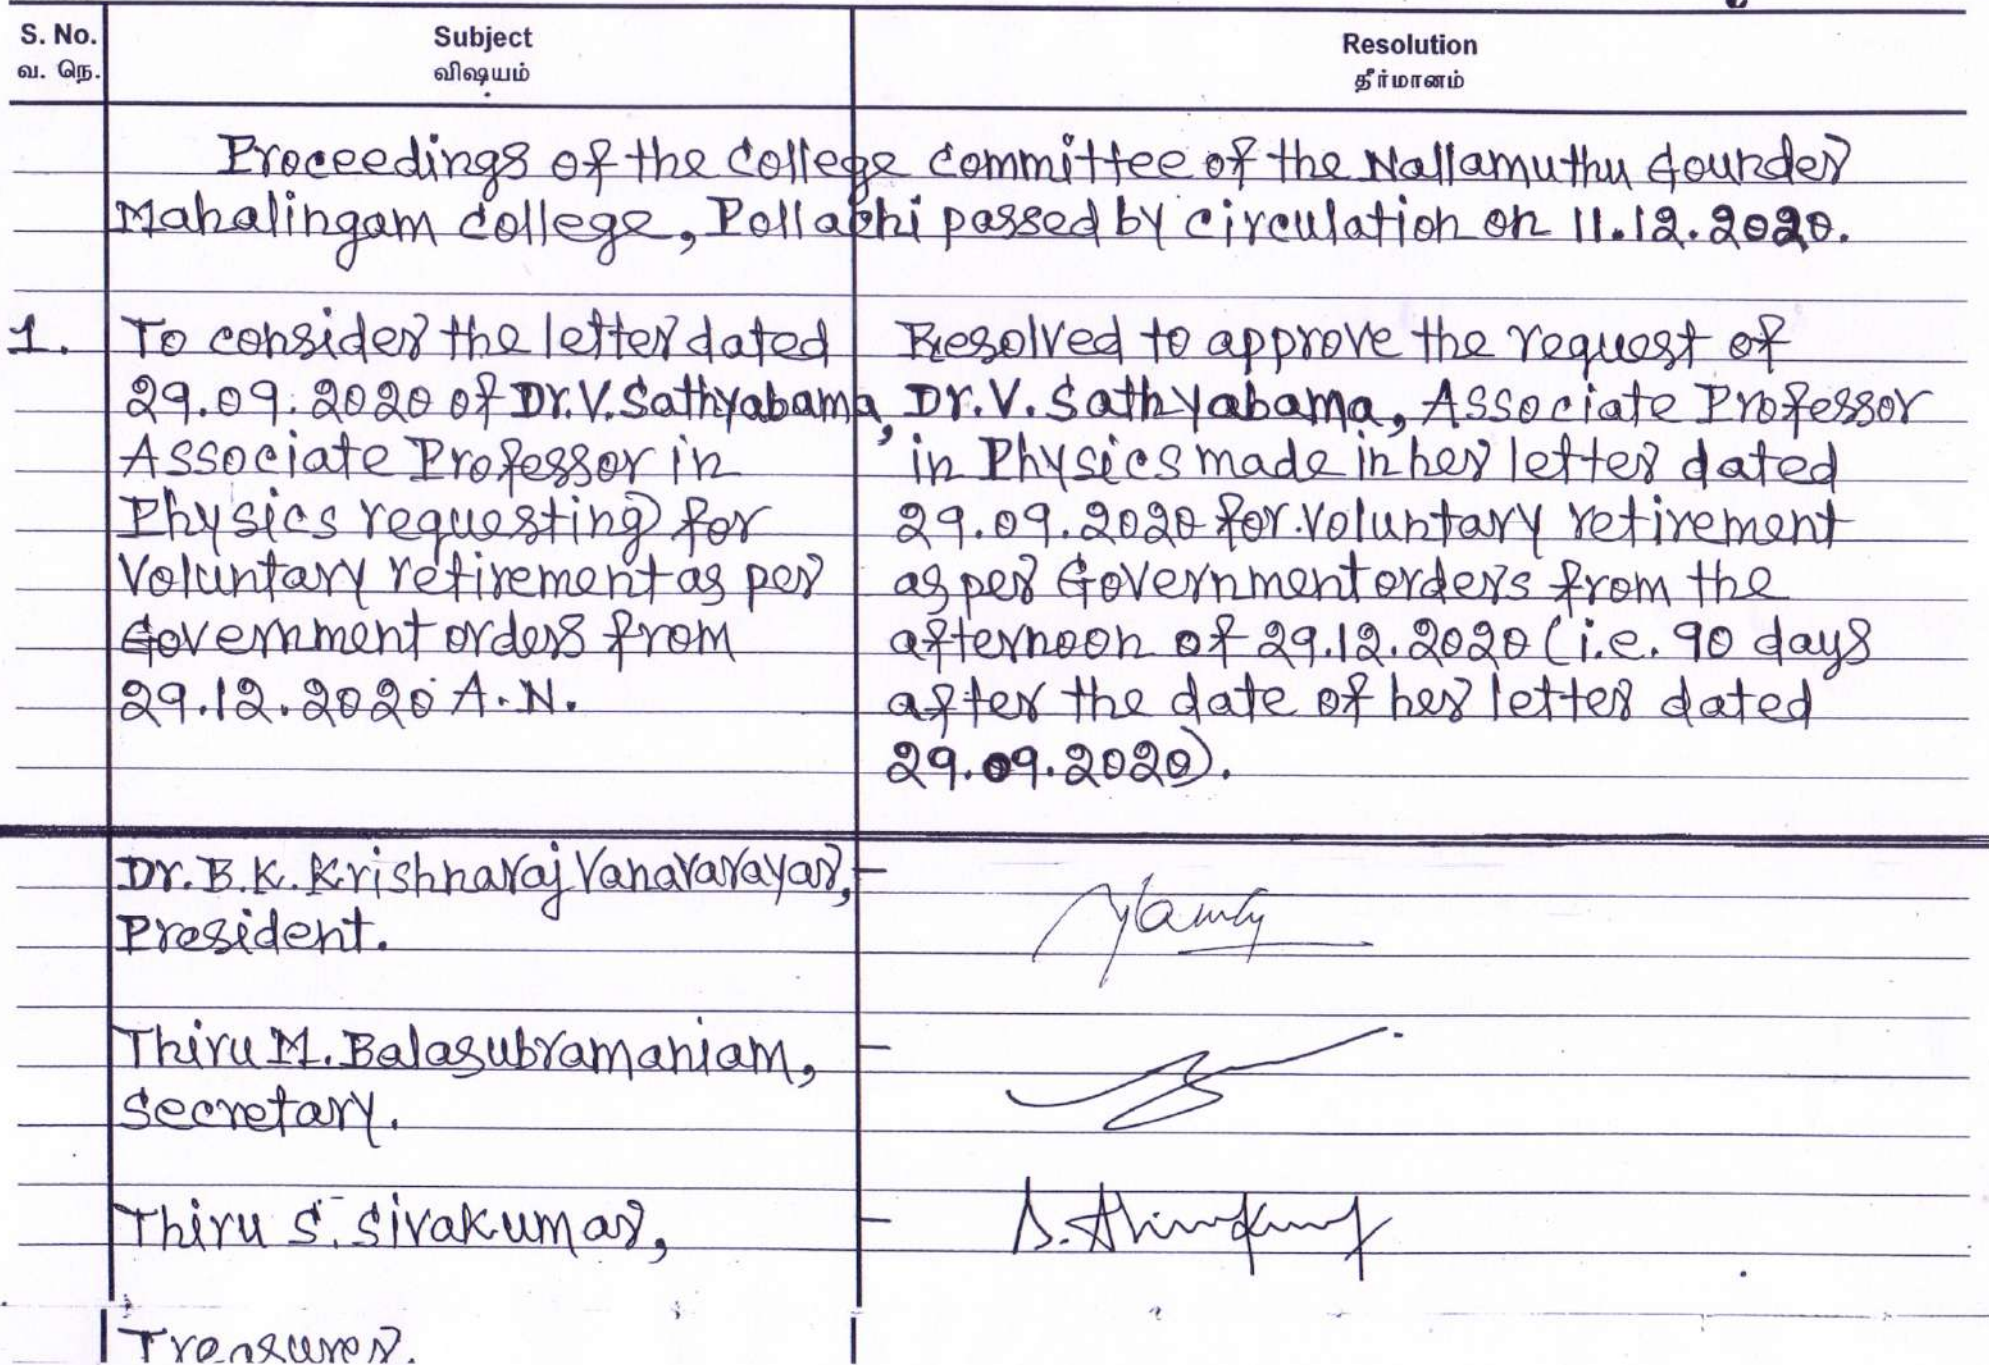 S. No. Subject Resolution
வ. நெ. விஷயம் தீர்மானம்
Proceedings of the College Committee of the Nallamuthu Gounder
Mahalingam College, Pollachi passed by circulation on 11.12.2020.
1. To consider the letter dated
29.09.2020 of Dr.V.Sathyabama,
Associate Professor in
Physics requesting for
Voluntary retirement as per
Government orders from
29.12.2020 A.N.
Resolved to approve the request of
Dr.V.Sathyabama, Associate Professor
in Physics made in her letter dated
29.09.2020 for voluntary retirement
as per Government orders from the
afternoon of 29.12.2020 (i.e. 90 days
after the date of her letter dated
29.09.2020).
Dr.B.K.Krishnaraj Vanavarayar, -
President.
Thiru M.Balasubramaniam, -
Secretary.
Thiru S.Sivakumar, -
Treasurer.